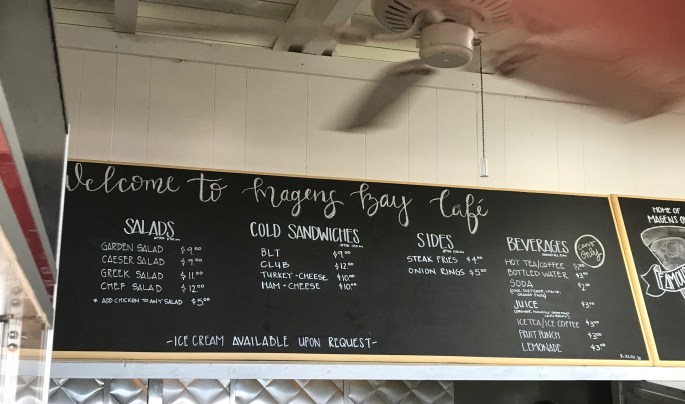 Welcome to Magens Bay Café
SALADS
GARDEN SALAD $9.00
CAESER SALAD $9.00
GREEK SALAD $11.00
CHEF SALAD $12.00
* ADD CHICKEN TO ANY SALAD $5.00
COLD SANDWICHES
BLT $9.00
CLUB $12.00
TURKEY-CHEESE $10.00
HAM-CHEESE $10.00
SIDES
STEAK FRIES $4.00
ONION RINGS $5.00
BEVERAGES
CANS Only!
HOT TEA/COFFEE
BOTTLED WATER
SODA
JUICE $3.00
ICE TEA/ICE COFFEE $3.00
FRUIT PUNCH $3.00
LEMONADE $3.00
-ICE CREAM AVAILABLE UPON REQUEST-
HOME OF
MAGENS
FAMOUS